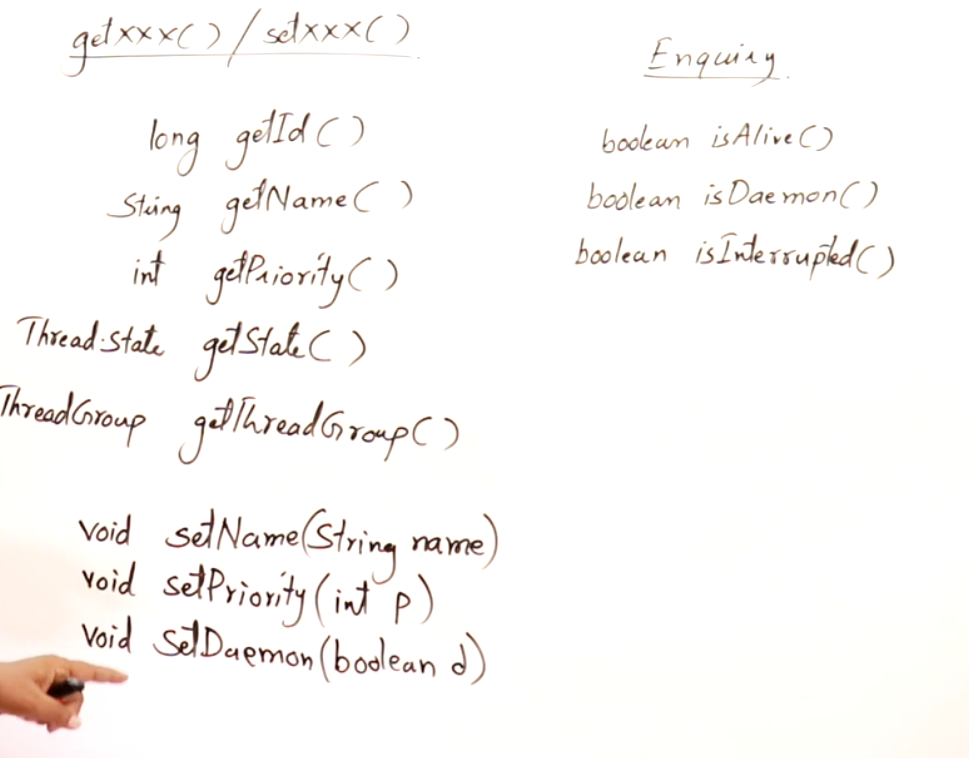 getxxx() / setxxx()
long getId()
String getName()
int getPriority()
Thread.State getState()
ThreadGroup getThreadGroup()
void setName(String name)
void setPriority(int p)
void setDaemon(boolean d)
Enquiry
boolean isAlive()
boolean isDaemon()
boolean isInterrupted()